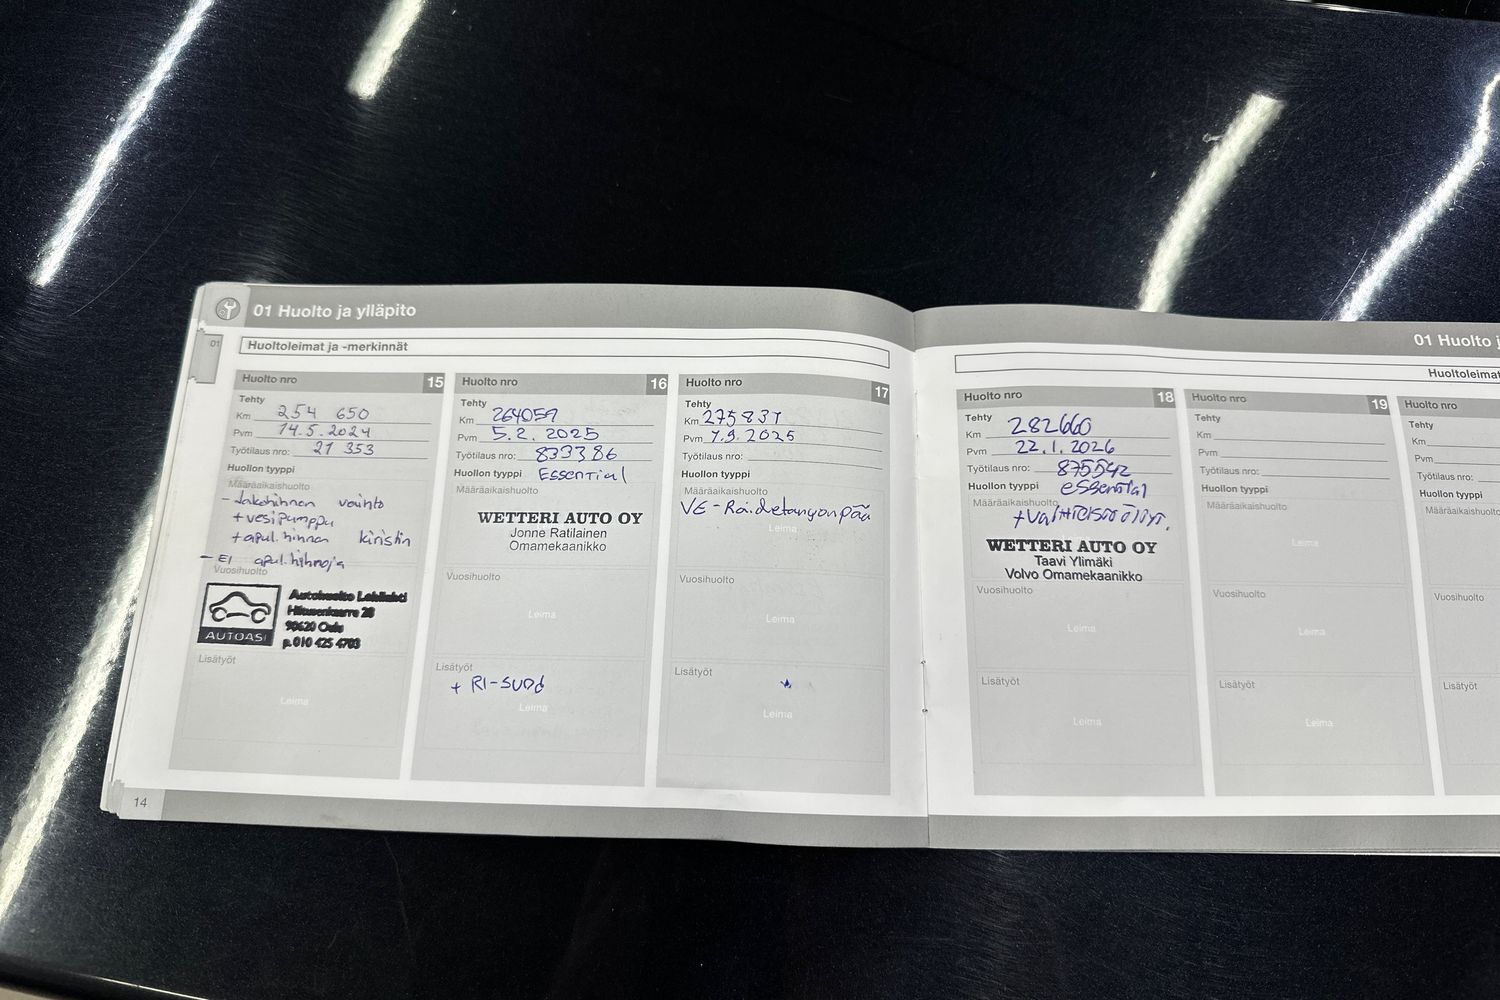 01 Huolto ja ylläpito
01
Huoltoleimat ja -merkinnät
Huolto nro 15
Tehty
Km 254 650
Pvm 14.5.2024
Työtilaus nro: 21 353
Huollon tyyppi
Määräaikaishuolto
- Jakohihnan vaihto
+ vesipumppu
+ apul.hinnan kiristin
- EI apul.hihnoja
Vuosihuolto
AUTOASI
Autohuolto Lehtilahti
Hiltusenkaarre 28
90620 Oulu
p.010 425 4703
Lisätyöt
Leima
14
Huolto nro 16
Tehty
Km 264059
Pvm 5.2.2025
Työtilaus nro: 833386
Huollon tyyppi Essential
Määräaikaishuolto
WETTERI AUTO OY
Jonne Ratilainen
Omamekaanikko
Vuosihuolto
Leima
Lisätyöt
+ RI-SUOd
Leima
Huolto nro 17
Tehty
Km 275837
Pvm 7.9.2025
Työtilaus nro:
Huollon tyyppi
Määräaikaishuolto
VE-Raidetangonpää
Leima
Vuosihuolto
Leima
Lisätyöt
Leima
01 Huolto j
Huoltoleimat
Huolto nro 18
Tehty
Km 282660
Pvm 22.1.2026
Työtilaus nro: 875542
Huollon tyyppi essential
Määräaikaishuolto
WETTERI AUTO OY
Taavi Ylimäki
Volvo Omamekaanikko
Vuosihuolto
Leima
Lisätyöt
Leima
Huolto nro 19
Tehty
Km
Pvm
Työtilaus nro:
Huollon tyyppi
Määräaikaishuolto
Leima
Vuosihuolto
Leima
Lisätyöt
Leima
Huolto nro
Tehty
Km
Pvm
Työtilaus nro:
Huollon tyyppi
Määräaikaishuolto
Vuosihuolto
Lisätyöt